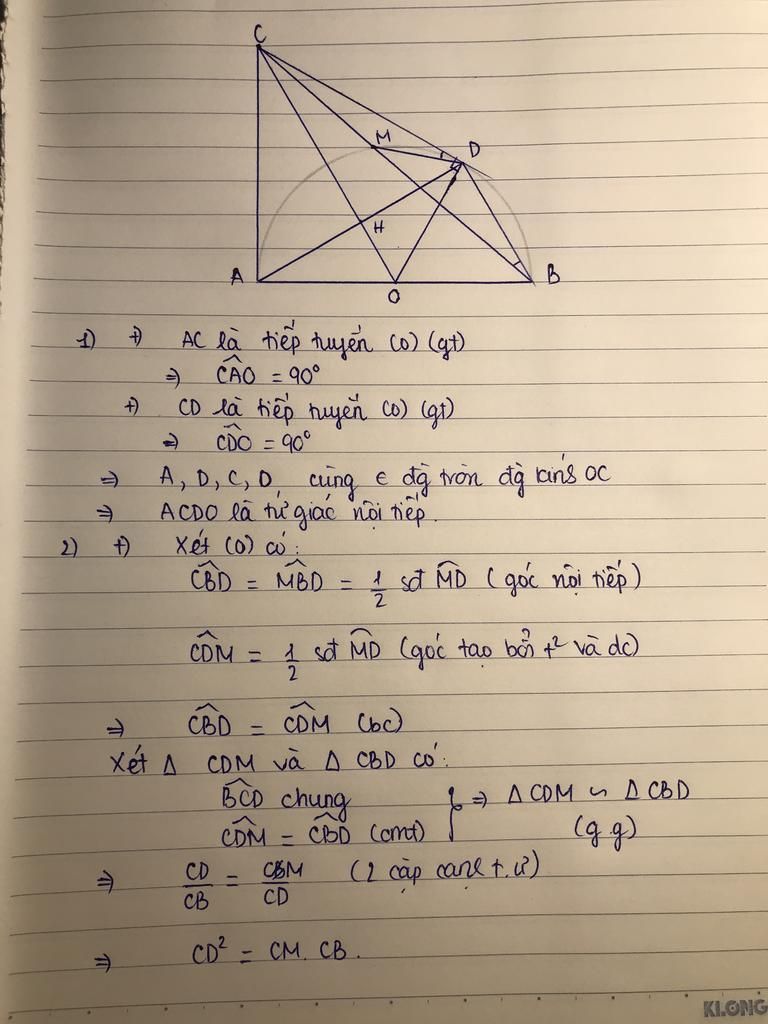 C
M
D
H
A
B
O
1) +) AC là tiếp tuyến (O) (gt)
⇒ \widehat{CAO} = 90°
+) CD là tiếp tuyến (O) (gt)
⇒ \widehat{CDO} = 90°
⇒ A, D, C, D cùng ∈ đg tròn đg kính OC
⇒ ACDO là tứ giác nội tiếp.
2) +) Xét (O) có:
\widehat{CBD} = \widehat{MBD} = \frac{1}{2} sđ \widehat{MD} (góc nội tiếp)
\widehat{CDM} = \frac{1}{2} sđ \widehat{MD} (góc tạo bởi t² và dc)
⇒ \widehat{CBD} = \widehat{CDM} (bc)
Xét Δ CDM và Δ CBD có:
\widehat{BCD} chung
\widehat{CDM} = \widehat{CBD} (cmt) } ⇒ Δ CDM ∽ Δ CBD
(g.g)
⇒ \frac{CD}{CB} = \frac{CM}{CD} (2 cặp cạnh t.ư)
⇒ CD² = CM. CB.
KLONG